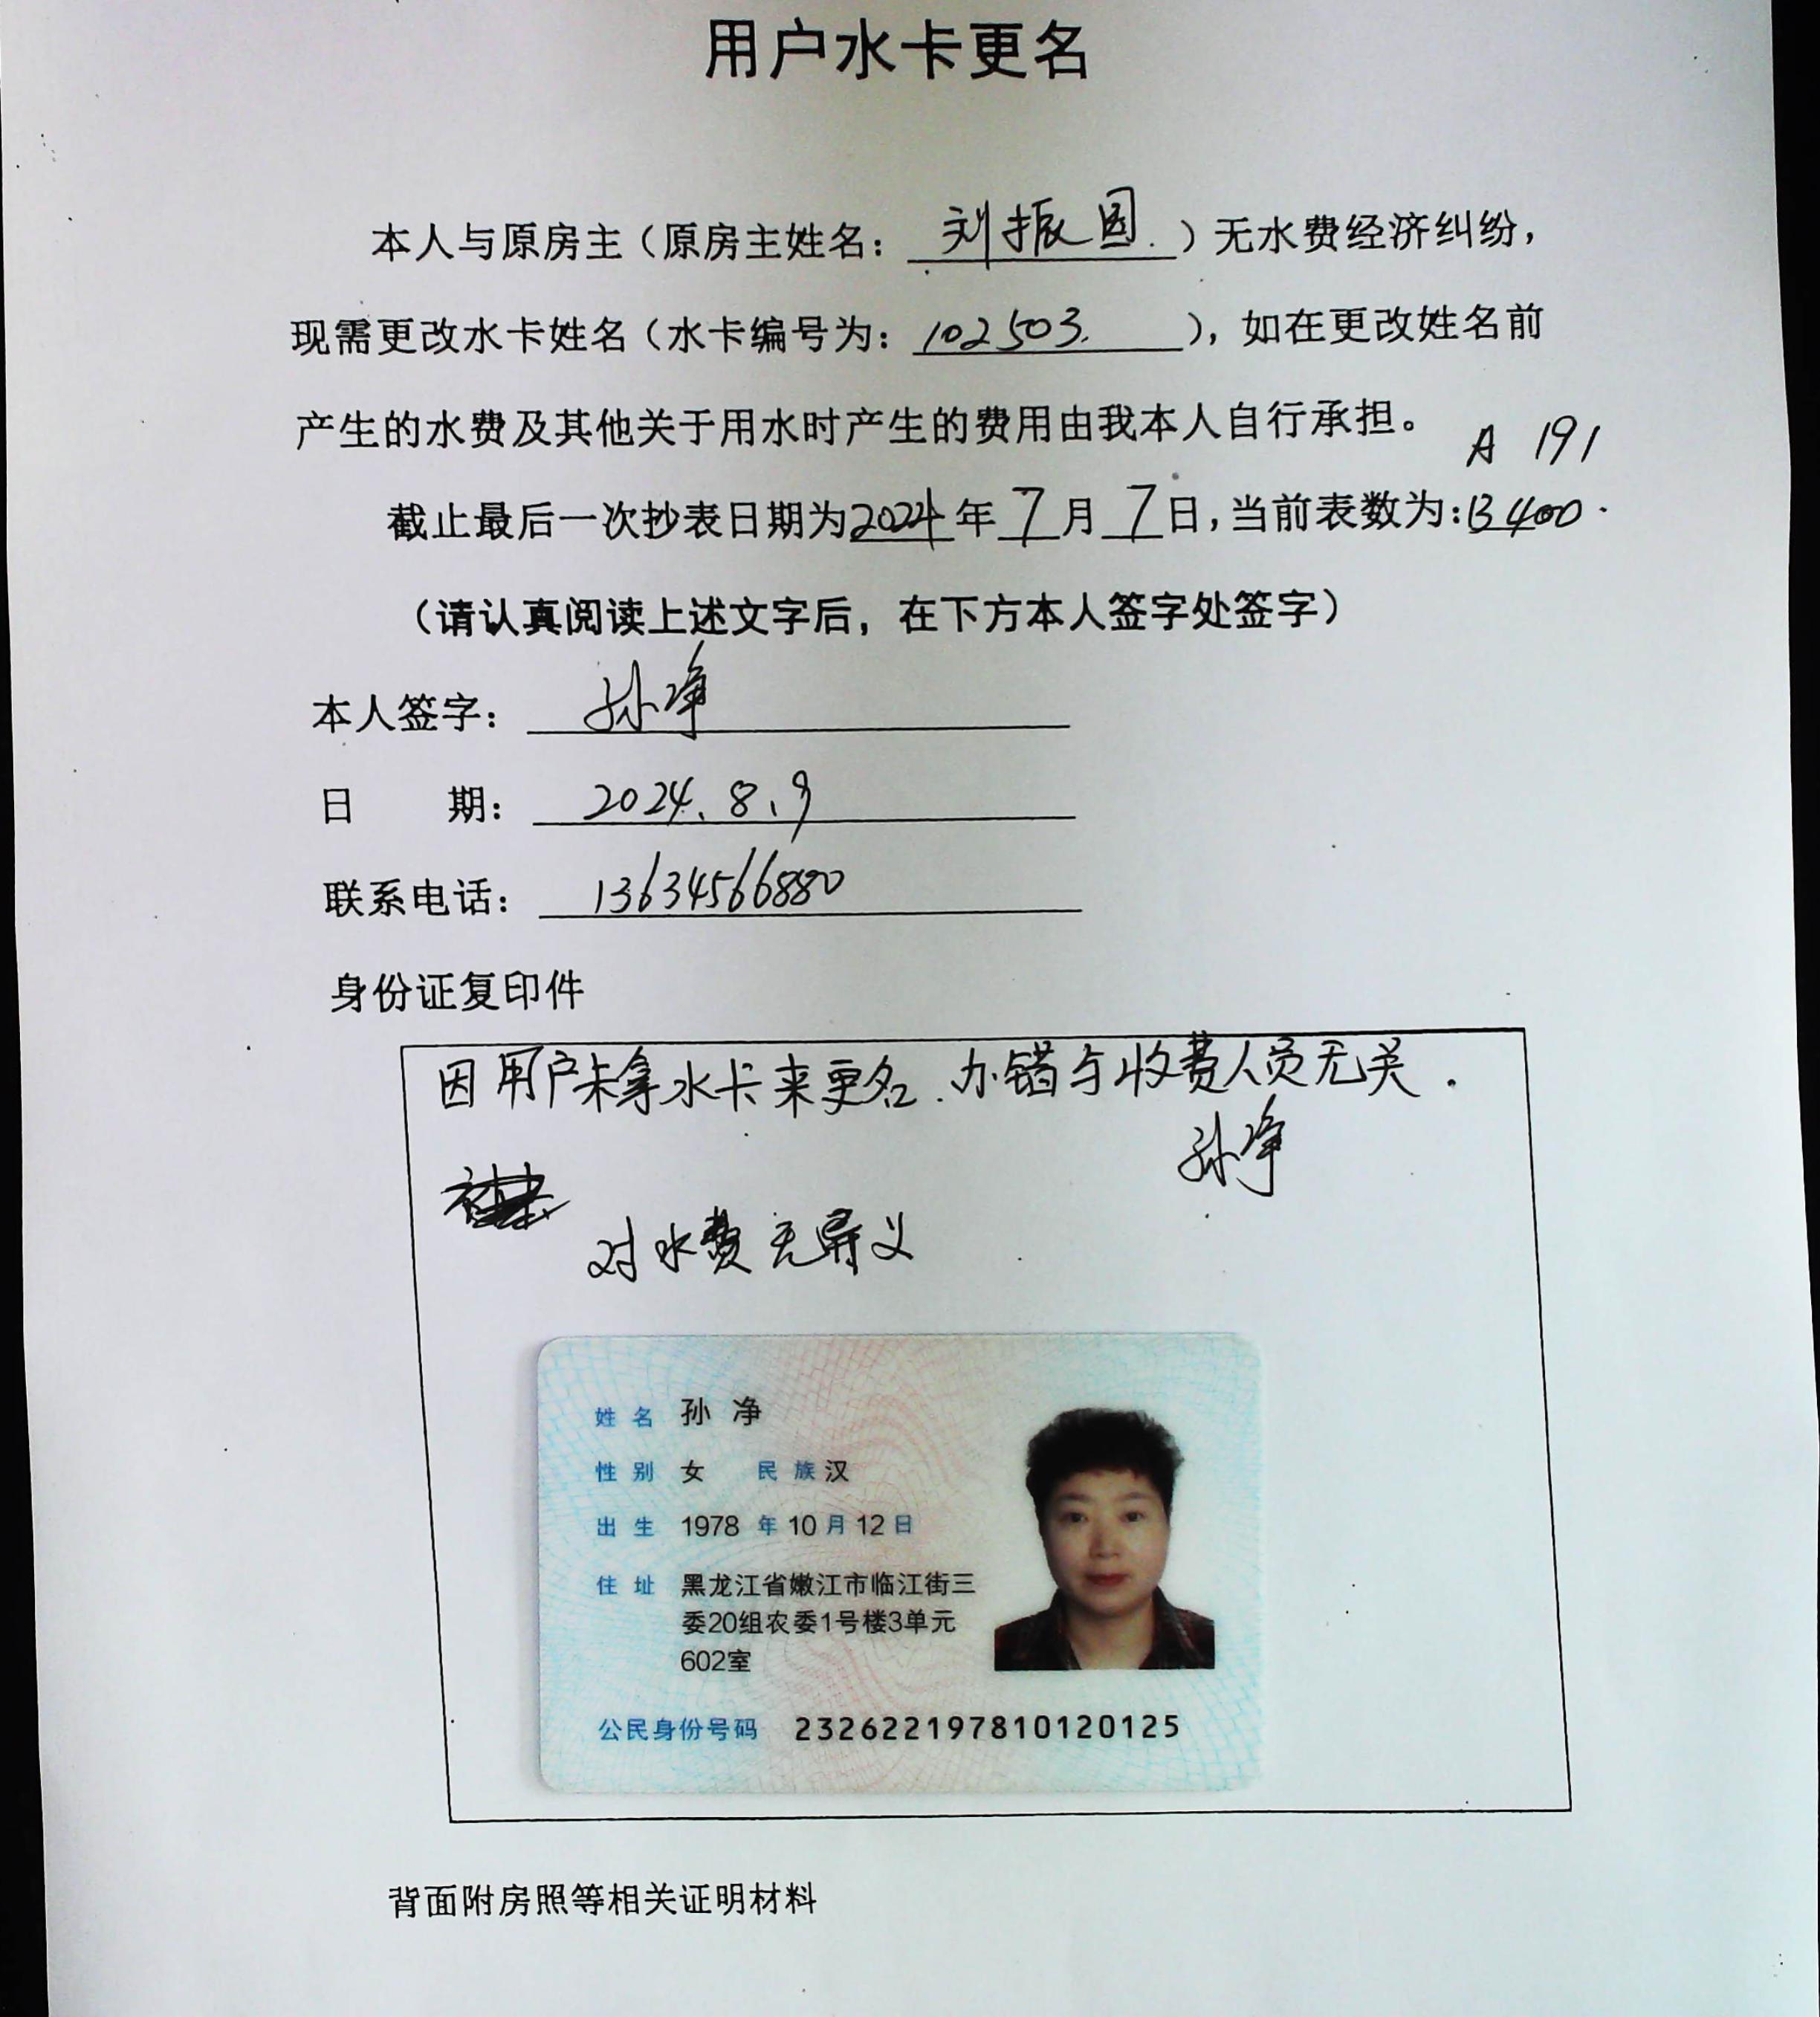 用户水卡更名
本人与原房主（原房主姓名：刘振国.）无水费经济纠纷，
现需更改水卡姓名（水卡编号为：102503.），如在更改姓名前
产生的水费及其他关于用水时产生的费用由我本人自行承担。
A 191
截止最后一次抄表日期为2024年7月7日，当前表数为：B400.
（请认真阅读上述文字后，在下方本人签字处签字）
本人签字：孙净
日 期：2024.8.9
联系电话：13634566880
身份证复印件
因用户未拿水卡来更名.办错与收费人员无关.
孙净
对水费无异义
姓名 孙净
性别 女 民族 汉
出生 1978 年 10 月 12 日
住址 黑龙江省嫩江市临江街三
委20组农委1号楼3单元
602室
公民身份号码 232622197810120125
背面附房照等相关证明材料